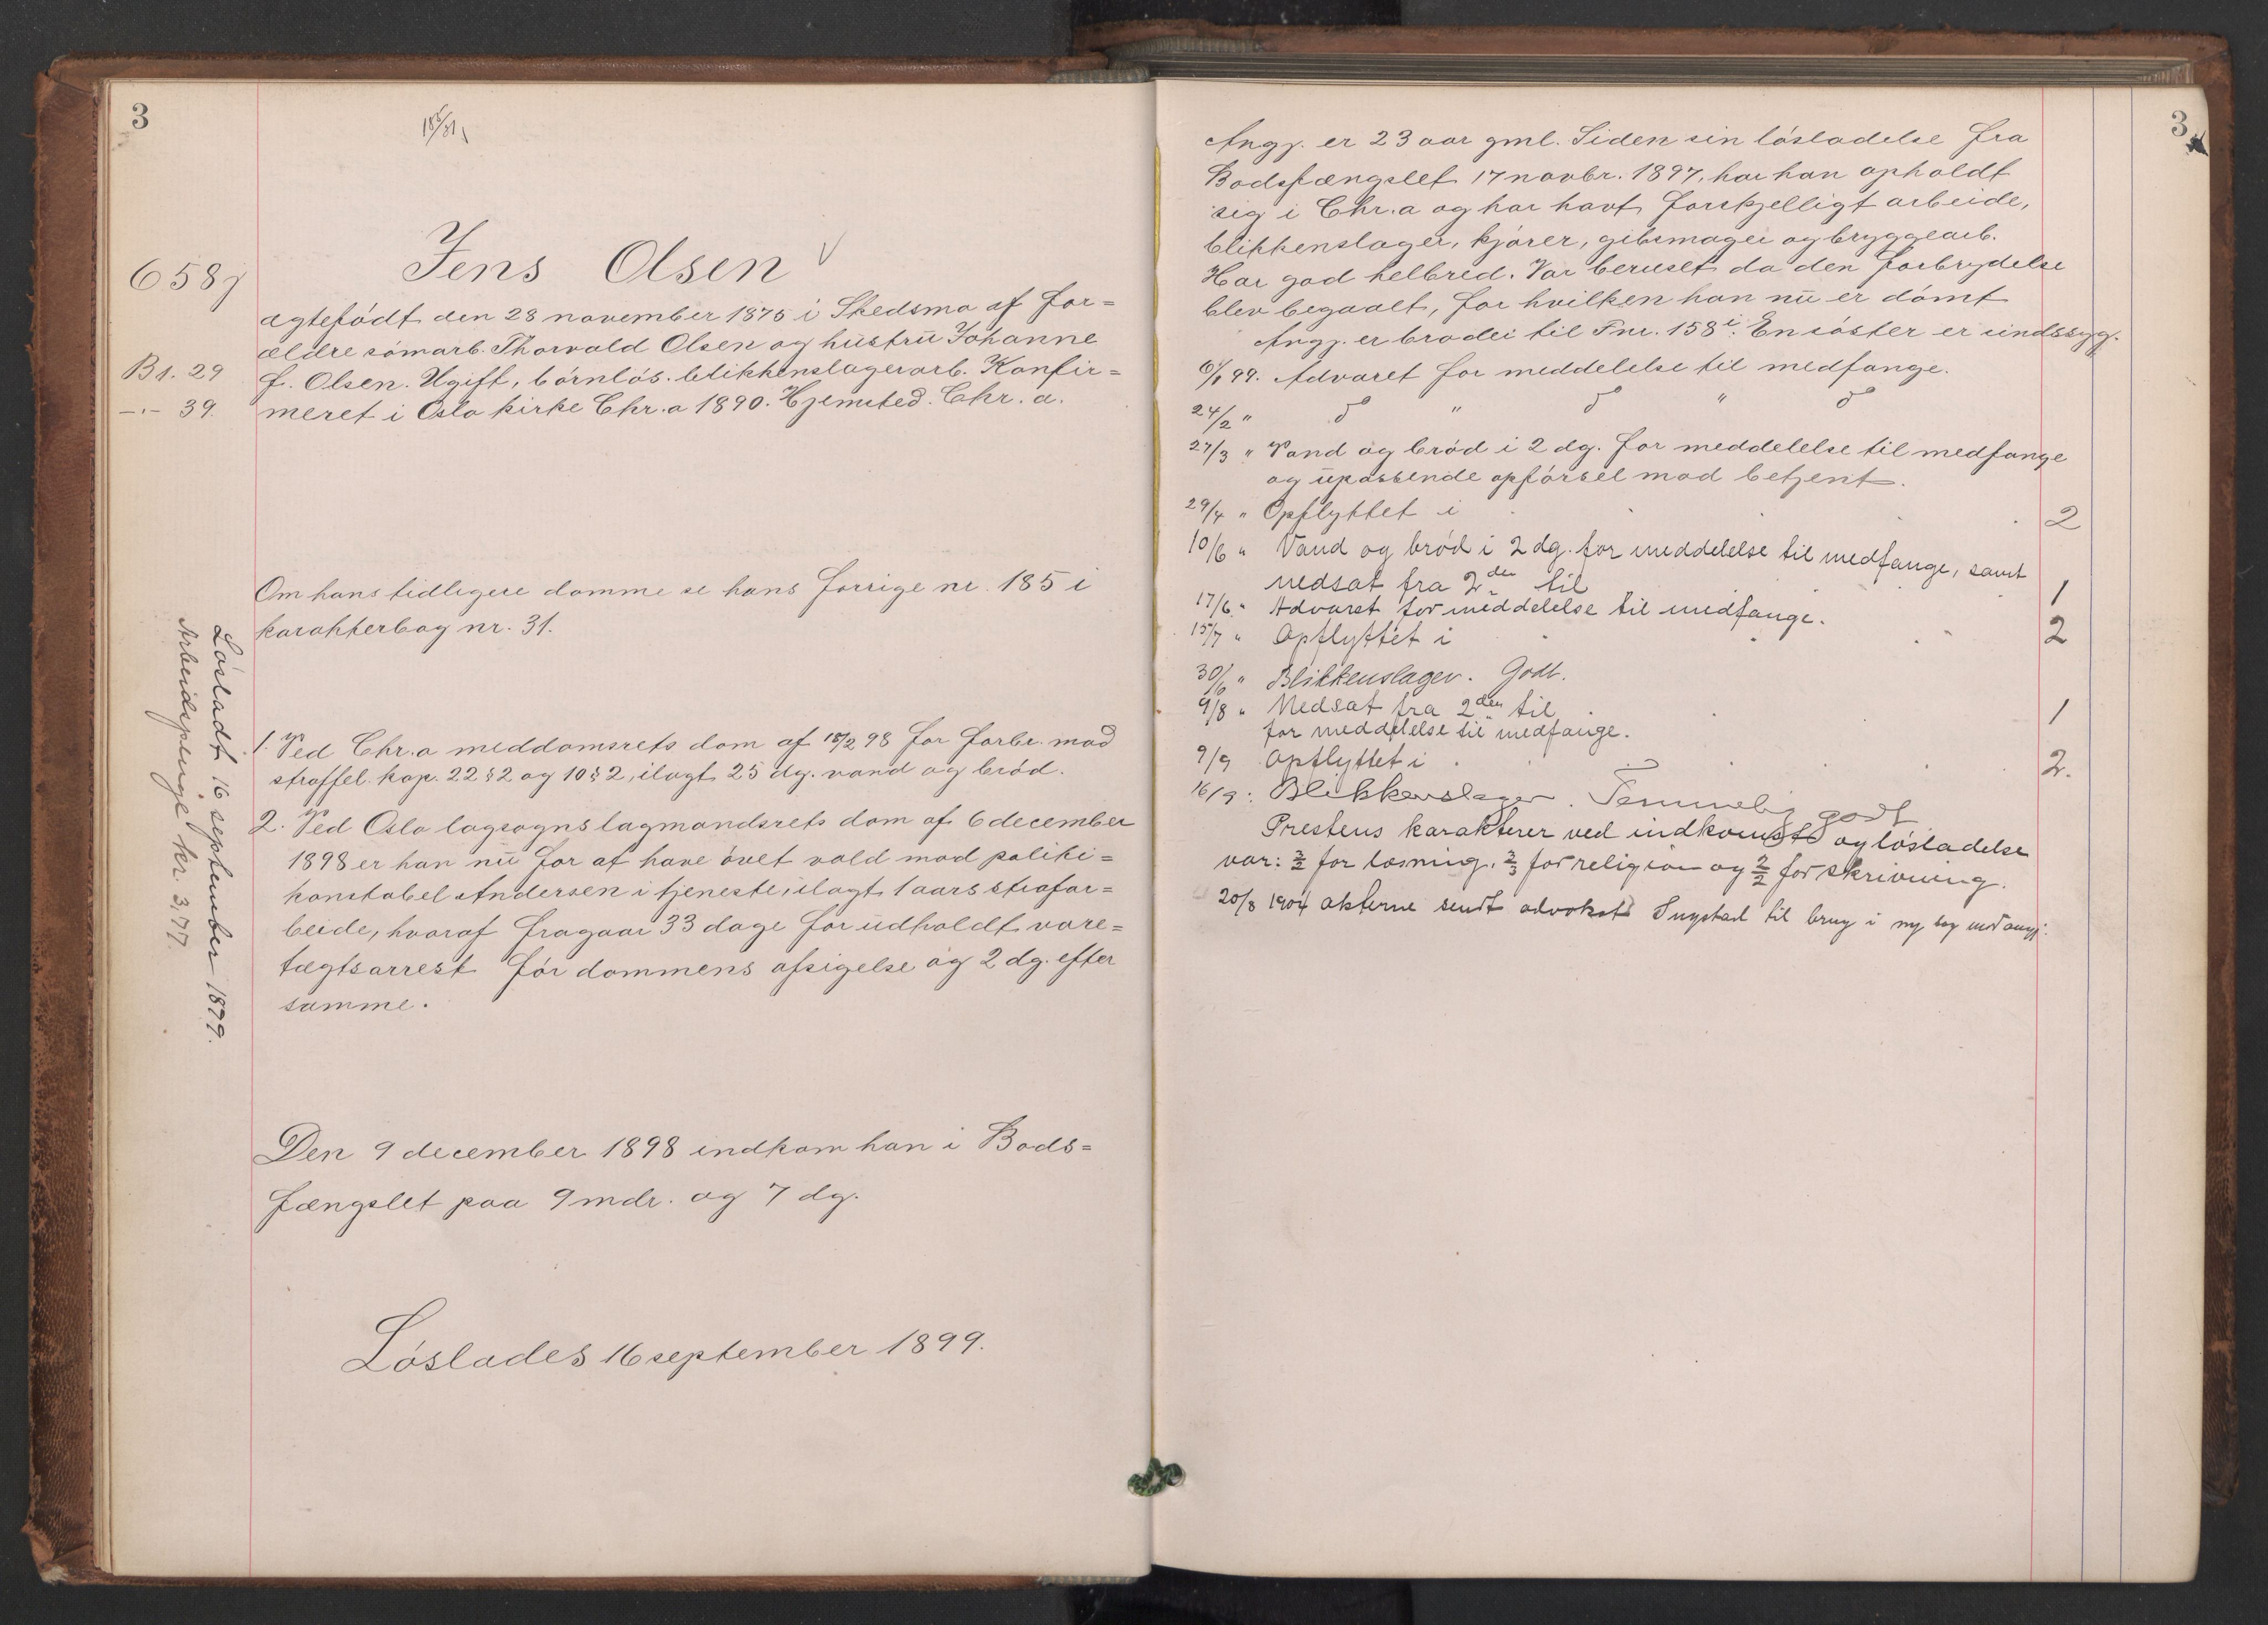 3
185/31
Jens Olsen
658j
ægtefödt den 28 november 1875 i Skedsmo af for=
ældre sömarb. Thorvald Olsen og hustru Johanne
B1. 29
f. Olsen. Ugift, börnlös. blikkenslagerarb. Konfir=
-"- 39.
meret i Oslo kirke Chr.a 1890. Hjemsted. Chr.a.
Om hans tidligere domme se hans forrige nr. 185 i
karakterbog nr. 31.
1. Ved Chr.a meddomsrets dom af 18/2 98 for forbr. mod
straffel. kap. 22 § 2 og 10 § 2, ilagt 25 dg. vand og bröd.
2. Ved Oslo lagsogns lagmandsrets dom af 6 december
1898 er han nu for at have övet vold mod politi=
konstabel Andersen i tjeneste, ilagt 1 aars strafar=
beide, hvoraf fragaar 33 dage for udholdt vare=
tægtsarrest för dommens afsigelse og 2 dg. efter
samme.
Den 9 december 1898 indkom han i Bods=
fængslet paa 9 mdr. og 7 dg.
Löslades 16 september 1899.
Lösladt 16 september 1899.
Arbeidspenge kr. 3,77.
3
Angj. er 23 aar gml. Siden sin lösladelse fra
Bodsfængslet 17 novbr. 1897, har han opholdt
sig i Chr.a og har havt forskjelligt arbeide,
blikkenslager, kjörer, gibsmager og bryggearb.
Har god helbred. Var beruset da den forbrydelse
blev begaaet, for hvilken han nu er dömt
Angj. er broder til Fnr. 158i. En söster er sindssyg.
6/1 99. Advaret for meddelelse til medfange.
24/2 " do " do " do
27/3 " Vand og bröd i 2 dg. for meddelelse til medfange
og upassende opförsel mod betjent.
29/4 " Opflyttet i 2
10/6 " Vand og bröd i 2 dg. for meddelelse til medfange, samt
nedsat fra 2den til 1
17/6 " Advaret for meddelelse til medfange.
15/7 " Opflyttet i 2
30/6 " Blikkenslager. Godt.
9/8 " Nedsat fra 2den til 1
for meddelelse til medfange.
9/9 Opflyttet i 2.
16/9: Blikkenslager. Temmelig godt
Prestens karakterer ved indkomst og lösladelse
var: 3/2 for læsning, 3/3 for religion og 2/2 for skrivning.
20/8 1904 akterne sendt advokat til brug i ny sag mod angj.